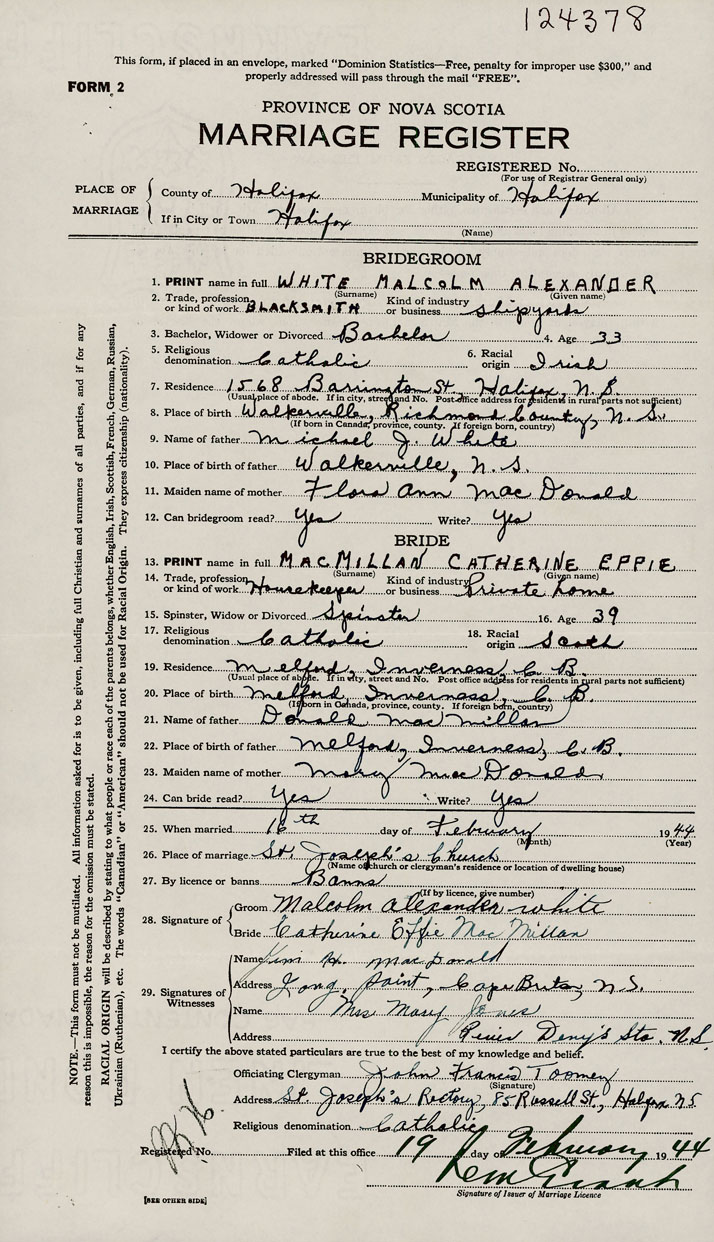 124378
This form, if placed in an envelope, marked “Dominion Statistics—Free, penalty for improper use $300,” and
properly addressed will pass through the mail “FREE”.
FORM 2
PROVINCE OF NOVA SCOTIA
MARRIAGE REGISTER
REGISTERED No.
(For use of Registrar General only)
PLACE OF MARRIAGE
County of Halifax Municipality of Halifax
If in City or Town Halifax
(Name)
BRIDEGROOM
1. PRINT name in full WHITE MALCOLM ALEXANDER
(Surname) (Given name)
2. Trade, profession or kind of work BLACKSMITH Kind of industry or business shipyards
3. Bachelor, Widower or Divorced Bachelor 4. Age 33
5. Religious denomination Catholic 6. Racial origin Irish
7. Residence 1568 Barrington St., Halifax, N.S.
(Usual place of abode. If in city, street and No. Post office address for residents in rural parts not sufficient)
8. Place of birth Walkerville, Richmond County, N.S.
(If born in Canada, province, county. If foreign born, country)
9. Name of father Michael J. White
10. Place of birth of father Walkerville, N.S.
11. Maiden name of mother Flora Ann MacDonald
12. Can bridegroom read? Yes Write? Yes
BRIDE
13. PRINT name in full MACMILLAN CATHERINE EPPIE
(Surname) (Given name)
14. Trade, profession or kind of work Housekeeper Kind of industry or business Private home
15. Spinster, Widow or Divorced Spinster 16. Age 39
17. Religious denomination Catholic 18. Racial origin Scoth
19. Residence Melford, Inverness, C.B.
(Usual place of abode. If in city, street and No. Post office address for residents in rural parts not sufficient)
20. Place of birth Melford, Inverness, C.B.
(If born in Canada, province, county. If foreign born, country)
21. Name of father Donald MacMillan
22. Place of birth of father Melford, Inverness, C.B.
23. Maiden name of mother Mary MacDonald
24. Can bride read? Yes Write? Yes
25. When married 16th day of February 1944
(Month) (Year)
26. Place of marriage St. Joseph's Church
(Name of church or clergyman's residence or location of dwelling house)
27. By licence or banns Banns
(If by licence, give number)
28. Signature of
Groom Malcolm Alexander White
Bride Catherine Effie MacMillan
29. Signatures of Witnesses
Name MacDonald
Address Long Point, Cape Breton, N.S.
Name Mrs Mary Jones
Address River Deny's Sta. N.S.
I certify the above stated particulars are true to the best of my knowledge and belief.
Officiating Clergyman John Francis Toomey
(Signature)
Address St. Joseph's Rectory, 85 Russell St., Halifax N.S
Religious denomination Catholic
Registered No. Filed at this office 19 day of February 1944
Signature of Issuer of Marriage Licence
[SEE OTHER SIDE]
NOTE.—This form must not be mutilated. All information asked for is to be given, including full Christian and surnames of all parties, and if for any
reason this is impossible, the reason for the omission must be stated.
RACIAL ORIGIN will be described by stating to what people or race each of the parents belongs, whether English, Irish, Scottish, French, German, Russian,
Ukrainian (Ruthenian), etc. The words “Canadian” or “American” should not be used for Racial Origin. They express citizenship (nationality).